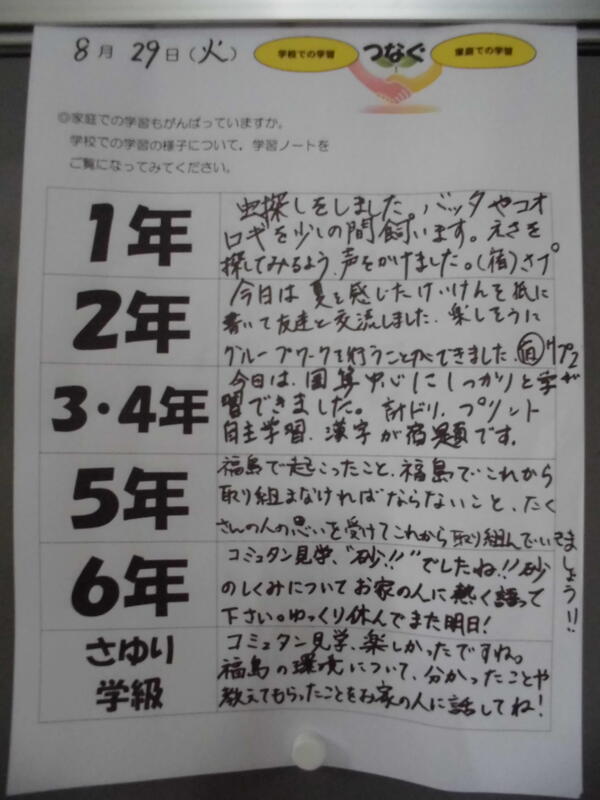 8月29日(火)
学校での学習
つなぐ
家庭での学習
◎家庭での学習もがんばっていますか。
学校での学習の様子について、学習ノートを
ご覧になってみてください。
1年
虫探しをしました。バッタやコオ
ロギを少しの間飼います。えさを
探してみるよう、声をかけました。(宿)さプ
2年
今日は夏を感じたけいけんを紙に
書いて友達と交流しました。楽しそうに
グループワークを行うことができました。宿けプ2
3・4年
今日は、国算中心にしっかりと学が
習できました。計ドリ、プリント
自主学習、漢字が宿題です。
5年
福島で起こったこと、福島でこれから
取り組まなければならないこと、たく
さんの人の思いを受けてこれから取り組んでいきましょう!!
6年
コミュタン見学、"砂!!"でしたね!!砂
のしくみについてお家の人に熱く語って
下さい。ゆっくり休んでまた明日!
さゆり
学級
コミュタン見学、楽しかったですね。
福島の環境について、分かったことや
教えてもらったことをお家の人に話してね!